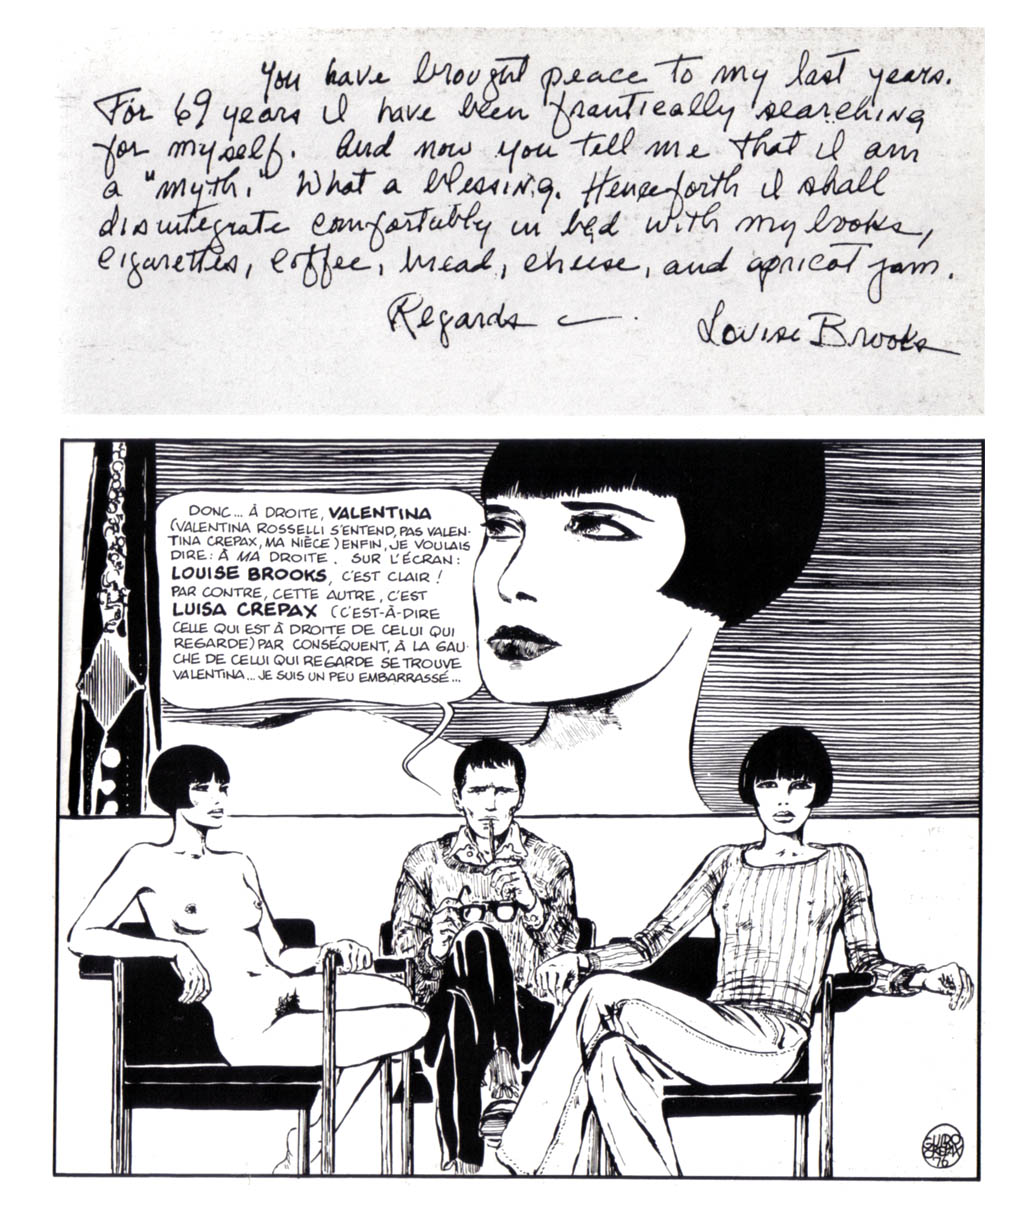 You have brought peace to my last years.
For 69 years I have been frantically searching
for myself. And now you tell me that I am
a "myth." What a blessing. Henseforth I shall
disintegrate comfortably in bed with my books,
cigarettes, coffee, bread, cheese, and apricot jam.
Regards —.
Louise Brooks
DONC... À DROITE, VALENTINA
(VALENTINA ROSSELLI S'ENTEND, PAS VALEN-
TINA CREPAX, MA NIÈCE) ENFIN, JE VOULAIS
DIRE: À MA DROITE. SUR L'ÉCRAN:
LOUISE BROOKS, C'EST CLAIR!
PAR CONTRE, CETTE AUTRE, C'EST
LUISA CREPAX (C'EST-À-DIRE
CELLE QUI EST À DROITE DE CELUI QUI
REGARDE) PAR CONSÉQUENT, À LA GAU-
CHE DE CELUI QUI REGARDE SE TROUVE
VALENTINA... JE SUIS UN PEU EMBARRASSÉ...
GUIDO
CREPAX
76